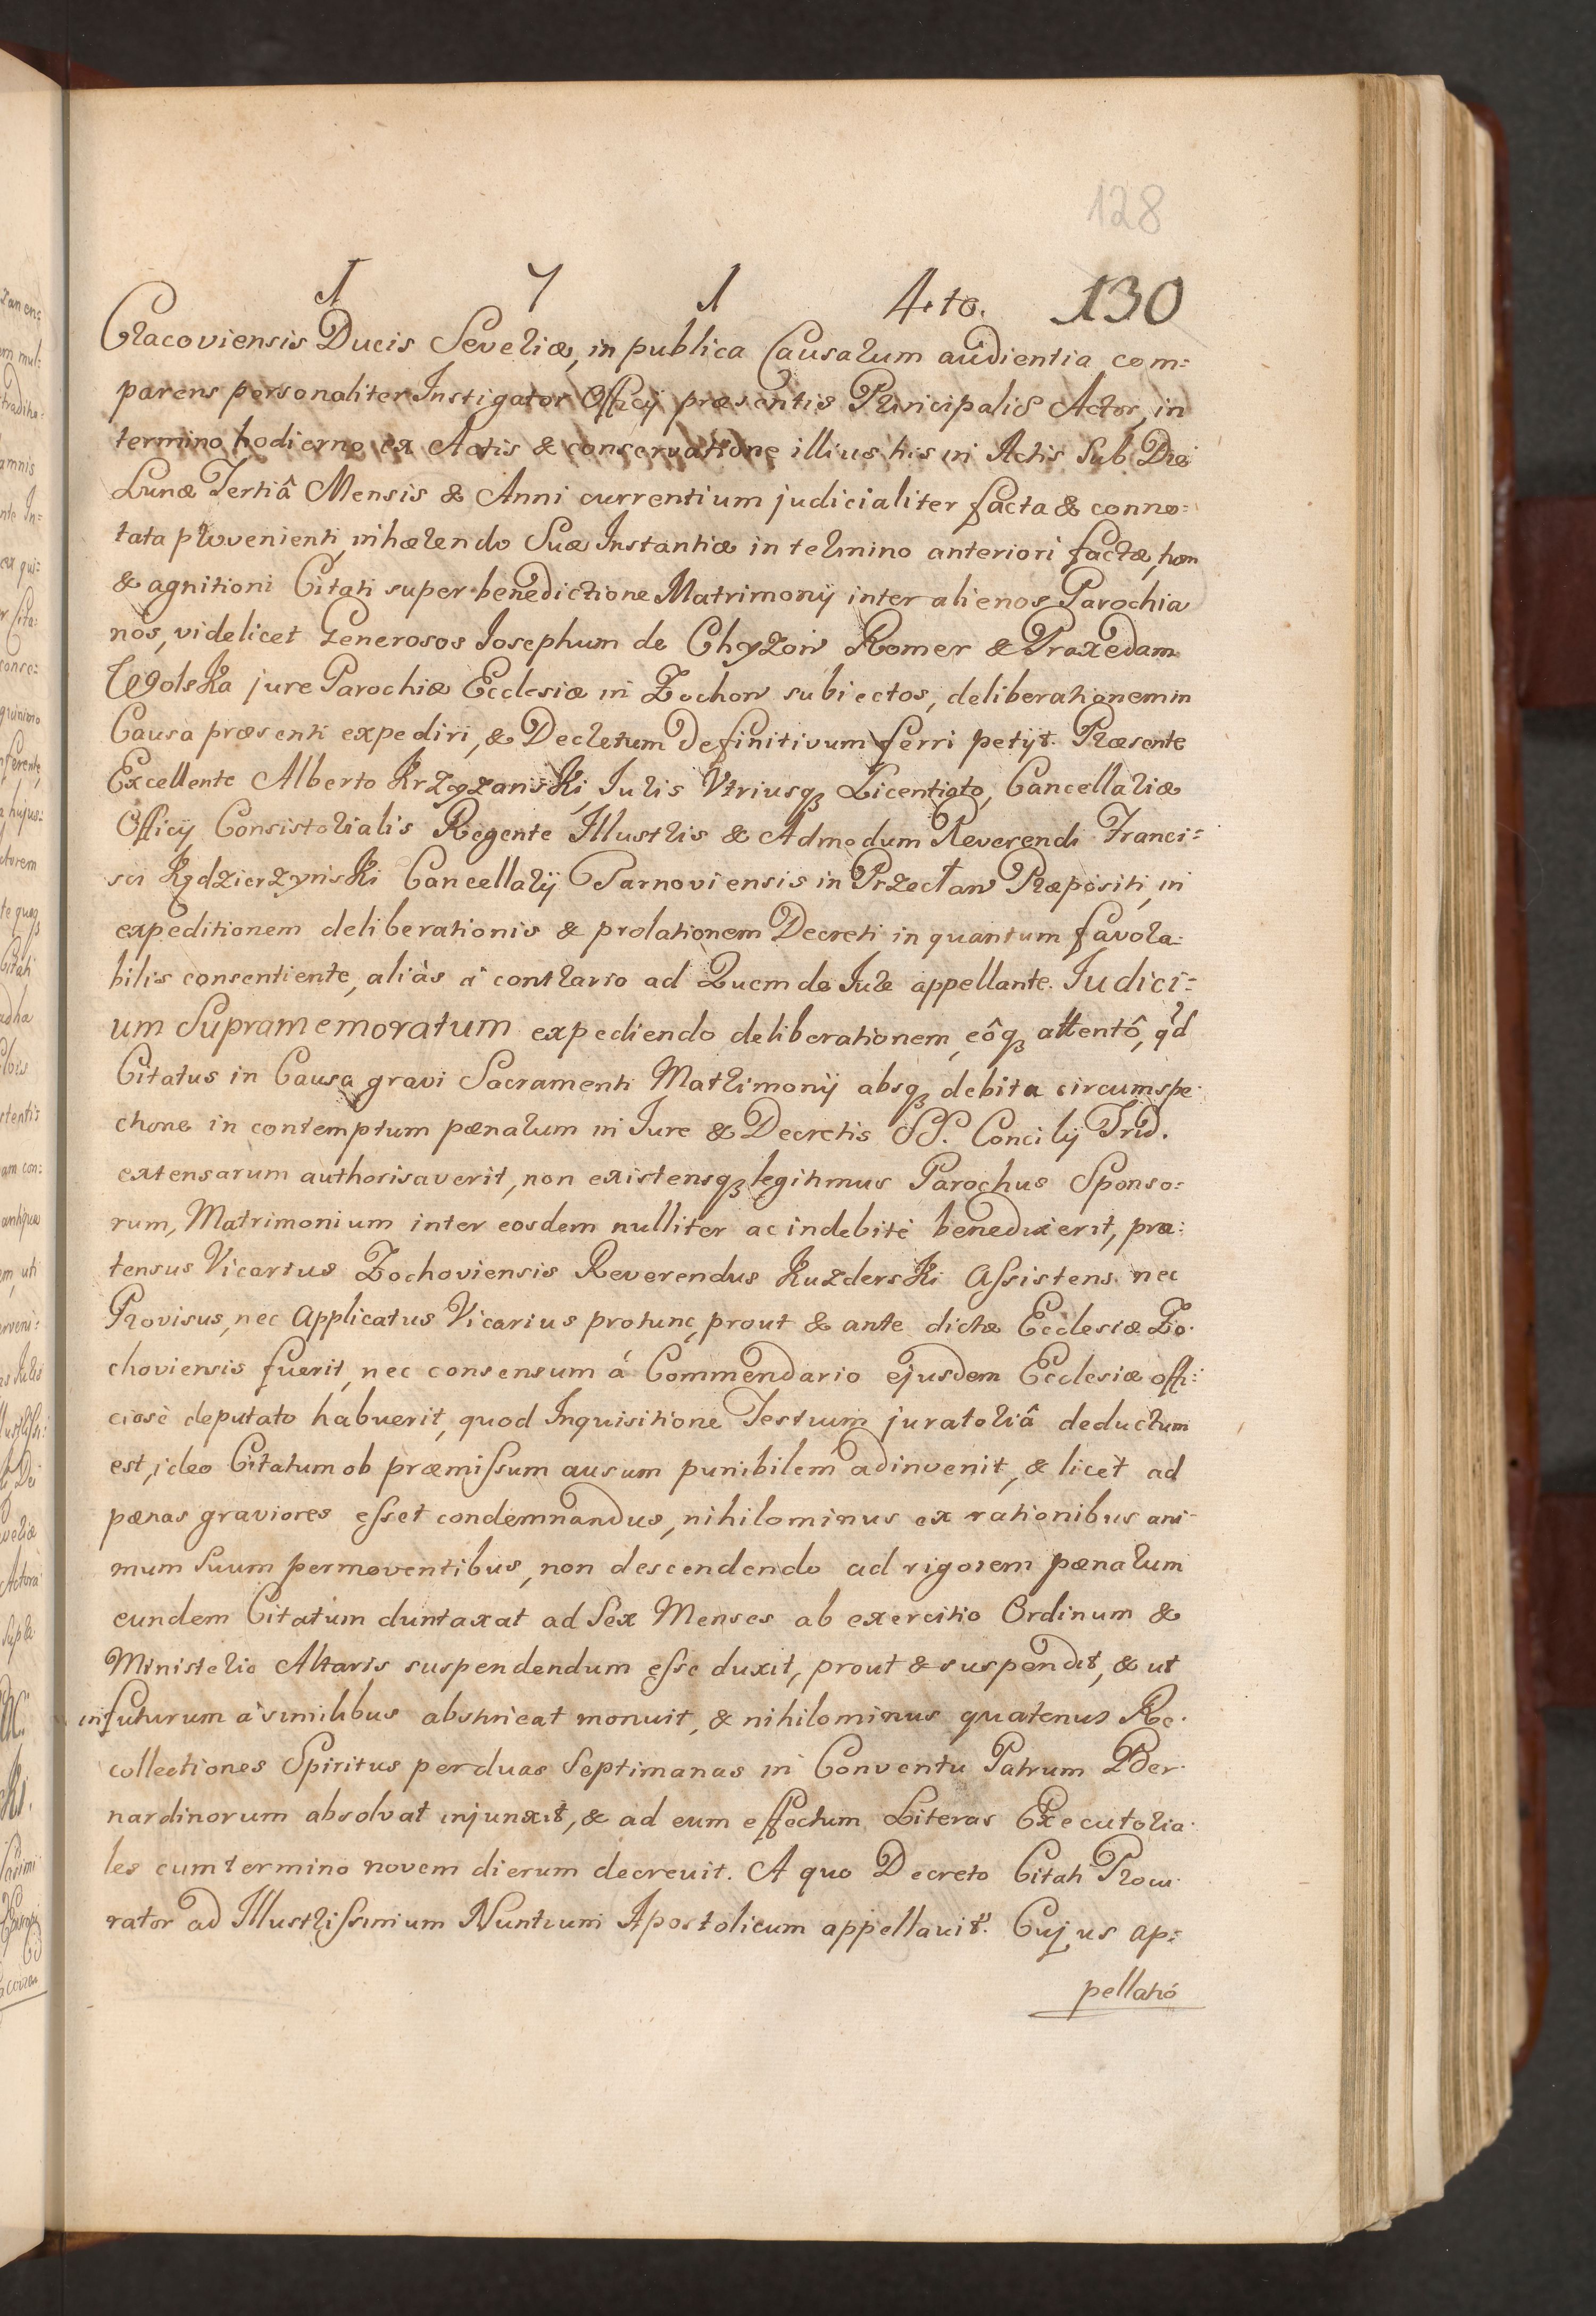 128
1 7 1 4.to. 130
Cracoviensis Ducis Severiæ, in publica Causarum audientia com=
parens personaliter Instigator Officij præsentis Principalis Actor, in
termino hodierno ex Actis & conservatione illius his in Actis Sub Die
Lunæ Tertiâ Mensis & Anni currentium judicialiter facta & conno=
tata provenienti, inhærendo Suæ Instantiæ in termino anteriori factæ,
& agnitioni Citati super benedictione Matrimonij inter alienos Parochia
nos, videlicet Generosos Iosephum de Chyzow Romer & Praxedam
jure Parochiæ Ecclesiæ in Zochow subiectos, deliberationem in
Causa præsenti expediri, & Decretum definitivum ferri petijt. Præsente
Excellente Alberto Krzyżański, Iuris Vtriusq₃ Licentiato, Cancellariæ
Officij Consistorialis Regente Illustris & Admodum Reverendi Franci=
sci Kędzierzyński Cancellarij Tarnoviensis in Przecław Præpositi, in
expeditionem deliberationis & prolationem Decreti in quantum favora=
bilis consentiente, aliàs à contrario ad Quem de Iure appellante. Iudici=
um Supramemoratum expediendo deliberationem, eôq₃ attentô, qd
Citatus in Causa gravi Sacramenti Matrimonij absq₃ debita circumspe
ctione in contemptum pænarum in Iure & Decretis SS. Concilij Trid.
extensarum authorisaverit, non existensq₃ legitimus Parochus Sponso=
rum, Matrimonium inter eosdem nulliter ac indebitè benedixerit, præ=
tensus Vicarius Zochoviensis Reverendus Kuzderski Assistens nec
Provisus, nec Applicatus Vicarius protunc, prout & ante dictæ Ecclesiæ Zo
choviensis fuerit, nec consensum á Commendario ejusdem Ecclesiæ offi=
ciosè deputato habuerit, quod Inquisitione Testium juratoriâ deductum
est, ideo Citatum ob præmissum ausum punibilem adinvenit, & licet ad
pænas graviores esset condemnandus, nihilominus ex rationibus ani-
mum Suum permoventibus, non descendendo ad rigorem pænarum
eundem Citatum duntaxat ad Sex Menses ab exercitio Ordinum &
Ministerio Altaris suspendendum esse duxit, prout & suspendit, & ut
in futurum à similibus abstineat monuit, & nihilominus quatenus Re
collectiones Spiritus per duas Septimanas in Conventu Patrum Ber
nardinorum absolvat injunxit, & ad eum effectum Literas Executoria
les cum termino novem dierum decrevit. A quo Decreto Citati Procu
rator ad Illustrissimum Nuntium Apostolicum appellavit. Cujus ap=
pellatio